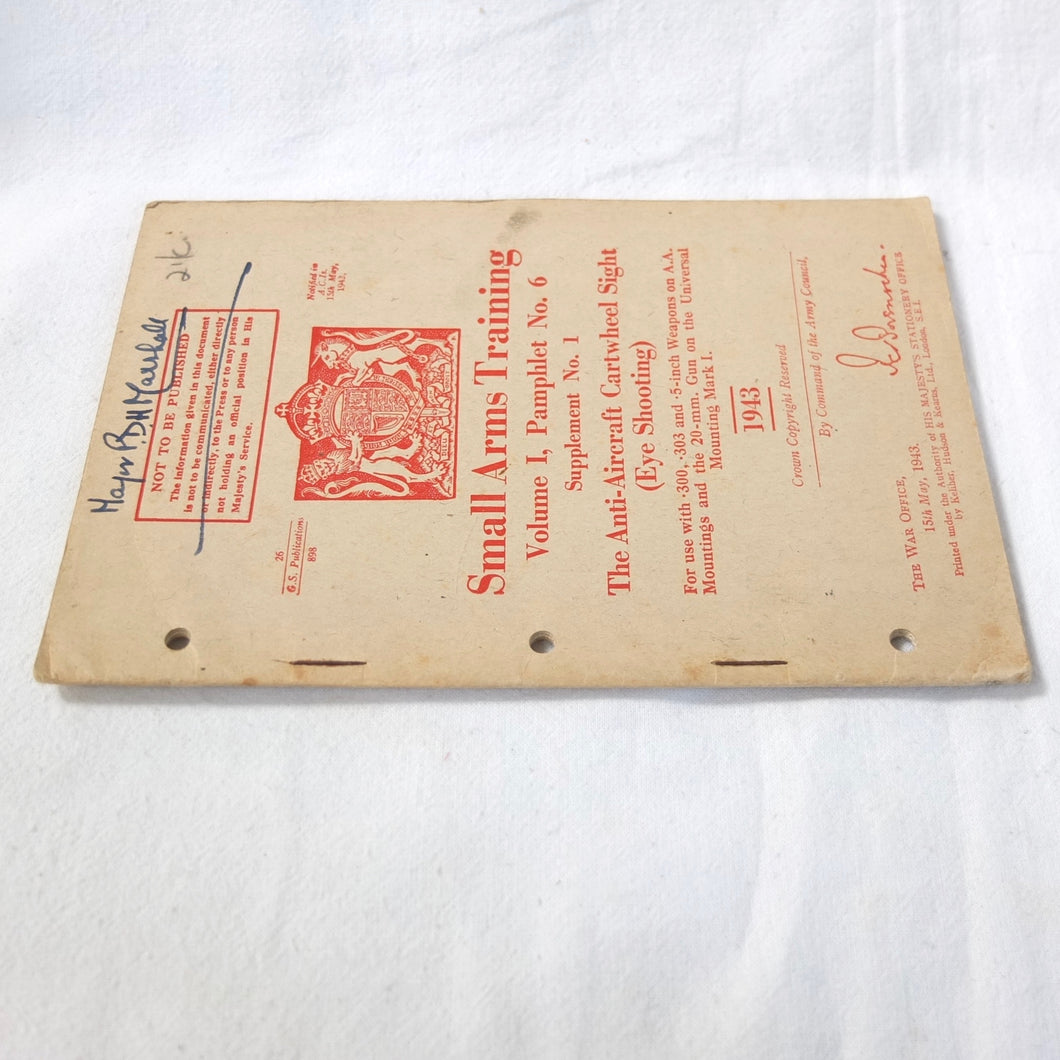 Major B.H. Marshall
21/-
NOT TO BE PUBLISHED
The information given in this document
is not to be communicated, either directly
or indirectly, to the Press or to any person
not holding an official position in His
Majesty's Service.
26
G.S. Publications
898
Notified in
A.C.Is.
15th May,
1943.
Small Arms Training
Volume I, Pamphlet No. 6
Supplement No. 1
The Anti-Aircraft Cartwheel Sight
(Eye Shooting)
For use with ·300, ·303 and ·5-inch Weapons on A.A.
Mountings and the 20-mm. Gun on the Universal
Mounting Mark I.
1943
Crown Copyright Reserved
By Command of the Army Council,
THE WAR OFFICE,
15th May, 1943.
Printed under the Authority of HIS MAJESTY'S STATIONERY OFFICE
by Keliher, Hudson & Kearns, Ltd., London, S.E.1.